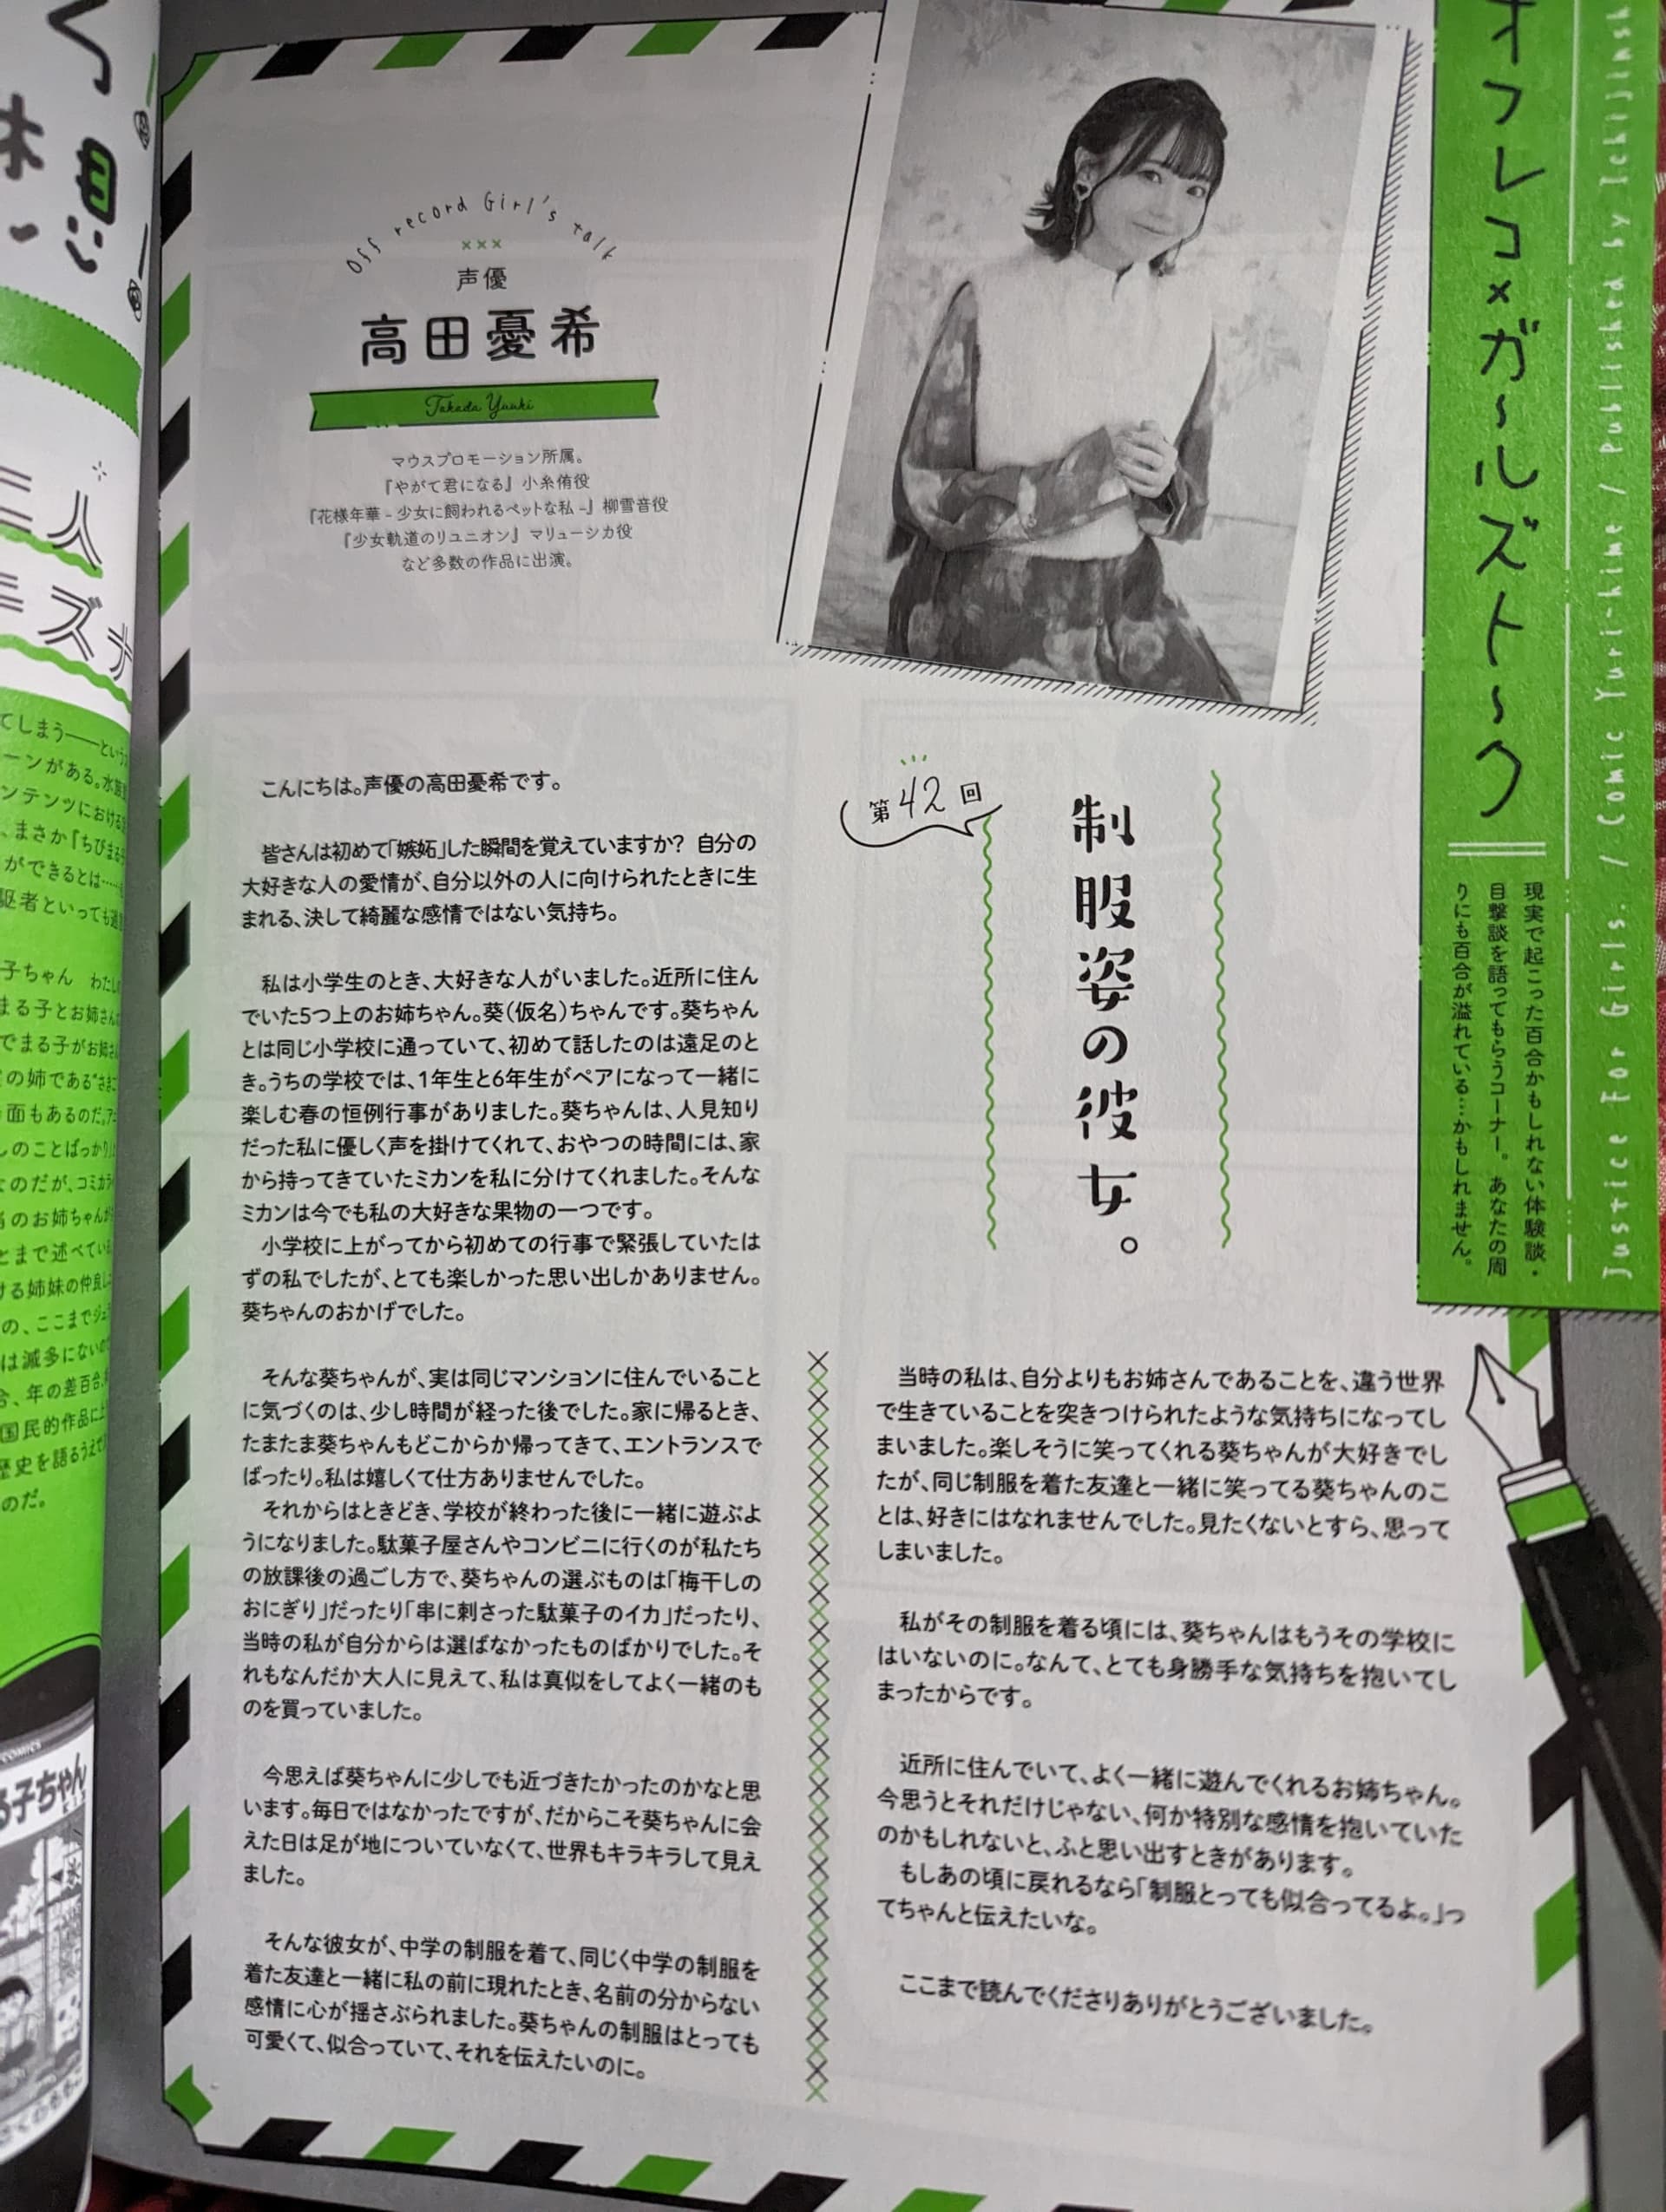 オフレコ×ガールズトーク
現実で起こった百合かもしれない体験談・
目撃談を語ってもらうコーナー。あなたの周
りにも百合が溢れている…かもしれません。
Justice For Girls. / Comic Yuri-hime / Published by Ichijinsh
Off record Girl's talk
×××
声優
高田憂希
Takada Yuuki
マウスプロモーション所属。
『やがて君になる』小糸侑役
『花様年華 - 少女に飼われるペットな私 -』柳雪音役
『少女軌道のリユニオン』マリューシカ役
など多数の作品に出演。
第42回
制服姿の彼女。
こんにちは。声優の高田憂希です。
皆さんは初めて「嫉妬」した瞬間を覚えていますか? 自分の
大好きな人の愛情が、自分以外の人に向けられたときに生
まれる、決して綺麗な感情ではない気持ち。
私は小学生のとき、大好きな人がいました。近所に住ん
でいた5つ上のお姉ちゃん。葵(仮名)ちゃんです。葵ちゃん
とは同じ小学校に通っていて、初めて話したのは遠足のと
き。うちの学校では、1年生と6年生がペアになって一緒に
楽しむ春の恒例行事がありました。葵ちゃんは、人見知り
だった私に優しく声を掛けてくれて、おやつの時間には、家
から持ってきていたミカンを私に分けてくれました。そんな
ミカンは今でも私の大好きな果物の一つです。
小学校に上がってから初めての行事で緊張していたは
ずの私でしたが、とても楽しかった思い出しかありません。
葵ちゃんのおかげでした。
そんな葵ちゃんが、実は同じマンションに住んでいること
に気づくのは、少し時間が経った後でした。家に帰るとき、
たまたま葵ちゃんもどこからか帰ってきて、エントランスで
ばったり。私は嬉しくて仕方ありませんでした。
それからはときどき、学校が終わった後に一緒に遊ぶよ
うになりました。駄菓子屋さんやコンビニに行くのが私たち
の放課後の過ごし方で、葵ちゃんの選ぶものは「梅干しの
おにぎり」だったり「串に刺さった駄菓子のイカ」だったり、
当時の私が自分からは選ばなかったものばかりでした。そ
れもなんだか大人に見えて、私は真似をしてよく一緒のも
のを買っていました。
今思えば葵ちゃんに少しでも近づきたかったのかなと思
います。毎日ではなかったですが、だからこそ葵ちゃんに会
えた日は足が地についていなくて、世界もキラキラして見え
ました。
そんな彼女が、中学の制服を着て、同じく中学の制服を
着た友達と一緒に私の前に現れたとき、名前の分からない
感情に心が揺さぶられました。葵ちゃんの制服はとっても
可愛くて、似合っていて、それを伝えたいのに。
当時の私は、自分よりもお姉さんであることを、違う世界
で生きていることを突きつけられたような気持ちになってし
まいました。楽しそうに笑ってくれる葵ちゃんが大好きでし
たが、同じ制服を着た友達と一緒に笑ってる葵ちゃんのこ
とは、好きにはなれませんでした。見たくないとすら、思って
しまいました。
私がその制服を着る頃には、葵ちゃんはもうその学校に
はいないのに。なんて、とても身勝手な気持ちを抱いてし
まったからです。
近所に住んでいて、よく一緒に遊んでくれるお姉ちゃん。
今思うとそれだけじゃない、何か特別な感情を抱いていた
のかもしれないと、ふと思い出すときがあります。
もしあの頃に戻れるなら「制服とっても似合ってるよ。」っ
てちゃんと伝えたいな。
ここまで読んでくださりありがとうございました。